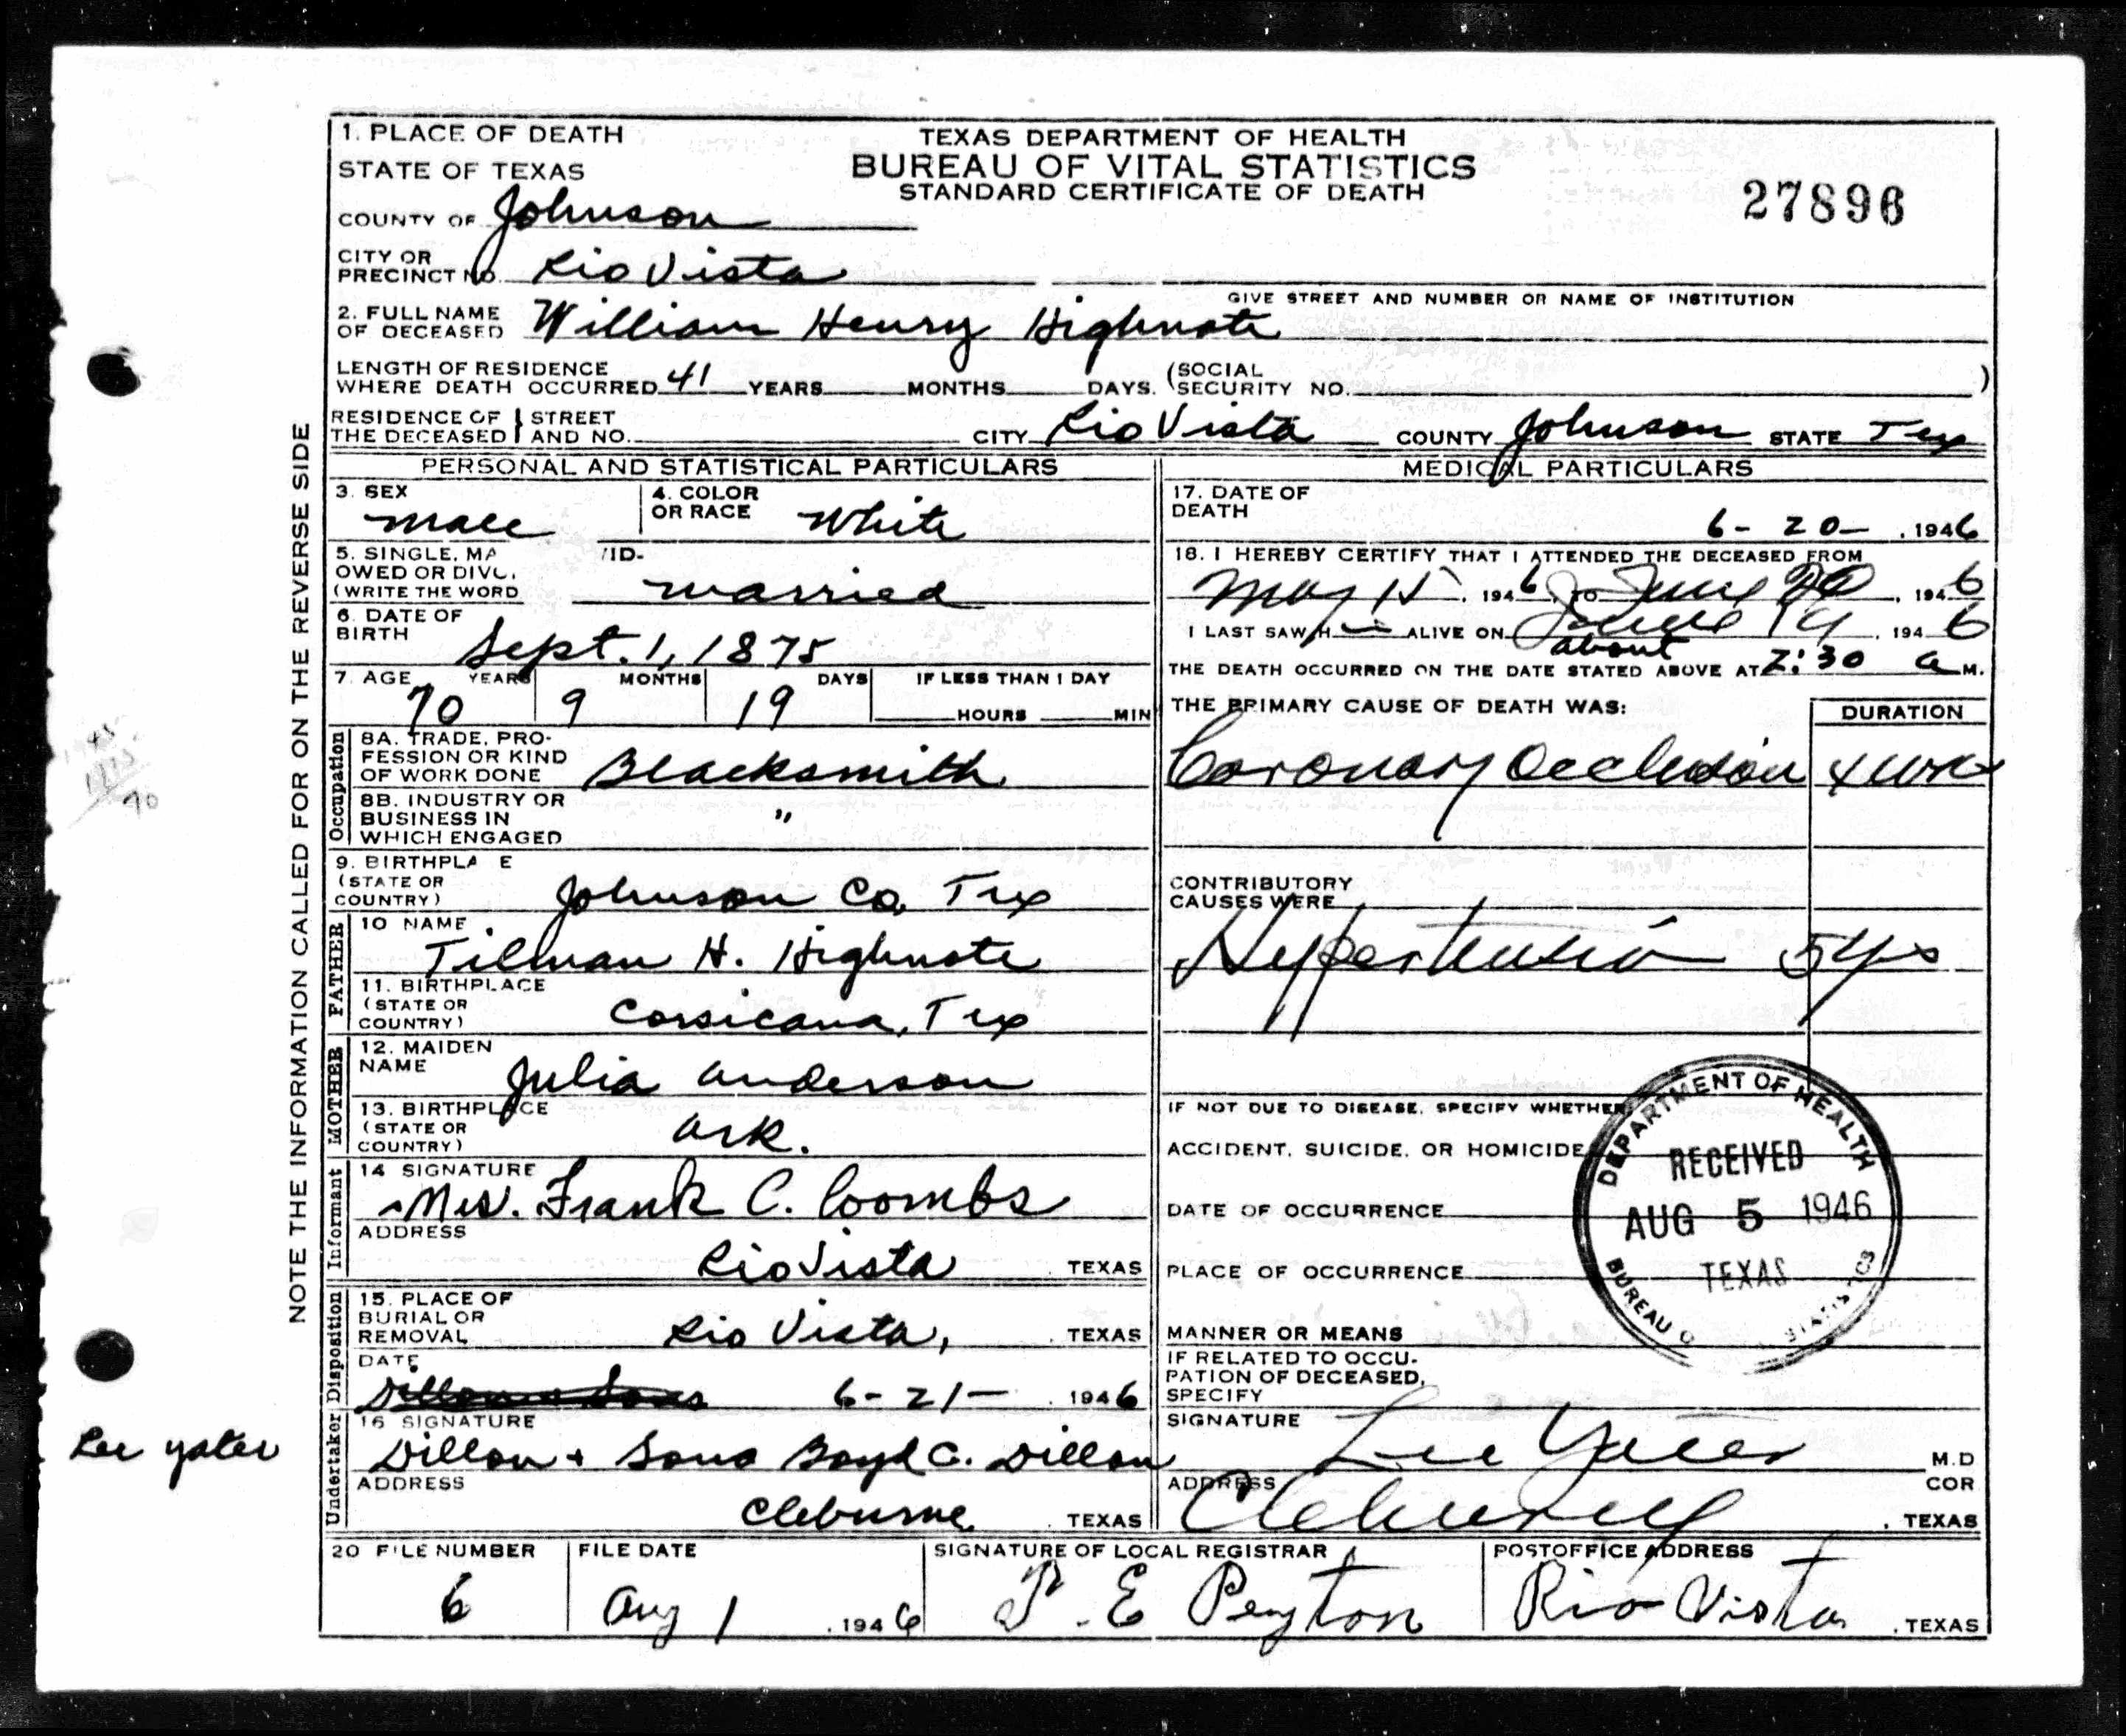 1. PLACE OF DEATH
STATE OF TEXAS
COUNTY OF Johnson
CITY OR
PRECINCT NO. Rio Vista
TEXAS DEPARTMENT OF HEALTH
BUREAU OF VITAL STATISTICS
STANDARD CERTIFICATE OF DEATH
27896
GIVE STREET AND NUMBER OR NAME OF INSTITUTION
2. FULL NAME
OF DECEASED William Henry Highnote
LENGTH OF RESIDENCE
WHERE DEATH OCCURRED 41 YEARS MONTHS DAYS. (SOCIAL
SECURITY NO. )
RESIDENCE OF
THE DECEASED
STREET
AND NO. CITY Rio Vista COUNTY Johnson STATE Tex
NOTE THE INFORMATION CALLED FOR ON THE REVERSE SIDE
PERSONAL AND STATISTICAL PARTICULARS
3. SEX
male
4. COLOR
OR RACE White
5. SINGLE, MA /ID-
OWED OR DIV
(WRITE THE WORD married
6. DATE OF
BIRTH Sept. 1, 1875
7. AGE YEARS MONTHS DAYS IF LESS THAN 1 DAY
70 9 19 HOURS MIN
Occupation
8A. TRADE, PRO-
FESSION OR KIND
OF WORK DONE Blacksmith
8B. INDUSTRY OR
BUSINESS IN
WHICH ENGAGED "
9. BIRTHPLA E
(STATE OR
COUNTRY) Johnson Co, Tex
FATHER
10 NAME
Tilman H. Highnote
11. BIRTHPLACE
(STATE OR
COUNTRY) Corsicana, Tex
MOTHER
12. MAIDEN
NAME Julia Anderson
13. BIRTHPLACE
(STATE OR
COUNTRY) Ark.
Informant
14 SIGNATURE
Mrs. Frank C. Coombs
ADDRESS
Rio Vista TEXAS
Disposition
15. PLACE OF
BURIAL OR
REMOVAL Rio Vista, TEXAS
DATE
Dillon & Sons 6-21- 1946
Undertaker
16 SIGNATURE
Dillon + Sons Boyd C. Dillon
ADDRESS
Cleburne TEXAS
MEDICAL PARTICULARS
17. DATE OF
DEATH
6-20-, 1946
18. I HEREBY CERTIFY THAT I ATTENDED THE DECEASED FROM
May 15, 1946 TO June 20, 1946
I LAST SAW H im ALIVE ON June 19, 1946
about
THE DEATH OCCURRED ON THE DATE STATED ABOVE AT 2:30 a M.
THE PRIMARY CAUSE OF DEATH WAS:
DURATION
Coronary Occlusion 4 wks
CONTRIBUTORY
CAUSES WERE
Hypertension 5 yrs
IF NOT DUE TO DISEASE, SPECIFY WHETHER
ACCIDENT, SUICIDE, OR HOMICIDE
DATE OF OCCURRENCE
PLACE OF OCCURRENCE
MANNER OR MEANS
IF RELATED TO OCCU-
PATION OF DECEASED,
SPECIFY
DEPARTMENT OF HEALTH
RECEIVED
AUG 5 1946
TEXAS
BUREAU O STATISTICS
SIGNATURE Lee Yater M.D
COR
ADDRESS
Cleburne, TEXAS
Lee Yater
20 FILE NUMBER
6
FILE DATE
Aug 1, 1946
SIGNATURE OF LOCAL REGISTRAR
P. E Peyton
POSTOFFICE ADDRESS
Rio Vista, TEXAS